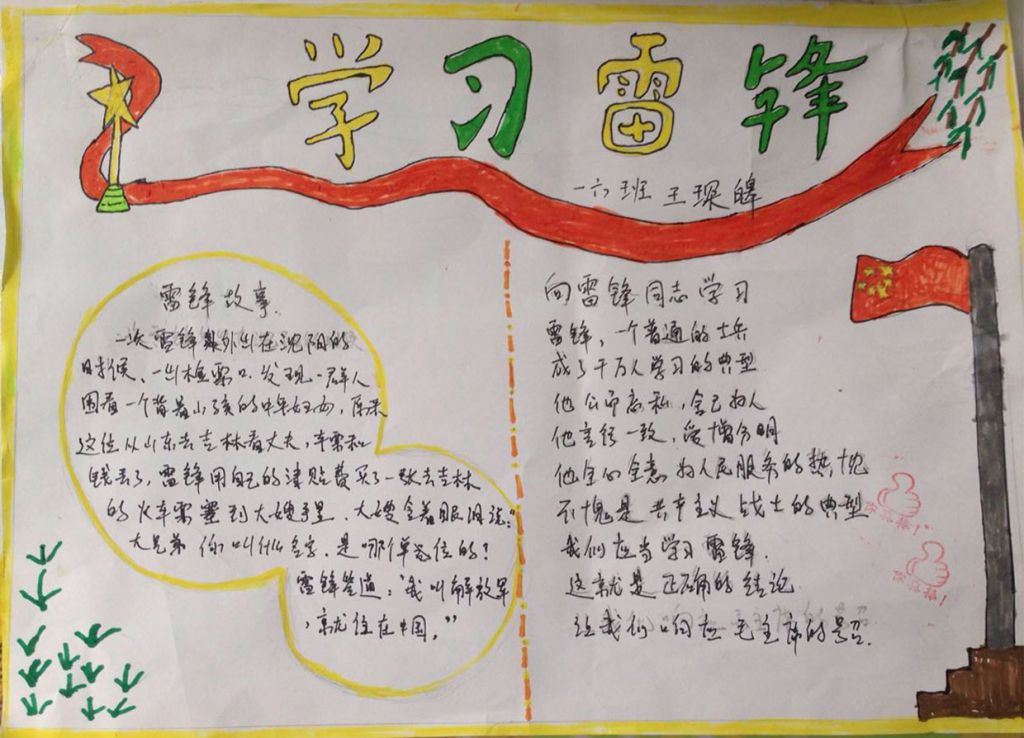 学习雷锋
一六班 王琛皞
雷锋故事.
一次雷锋外出在沈阳的
时候、一出检票口.发现一群人
围着一个背着小孩的中年妇女,原来
这位从山东去吉林看丈夫,车票和
钱丢了,雷锋用自己的津贴费买了一张去吉林
的火车票塞到大嫂手里.大嫂含着眼泪说:"
大兄弟你叫什么名字.是哪个单位的?
雷锋答道:"我叫解放军
,就住在中国,"
向雷锋同志学习
雷锋,一个普通的士兵
成了千万人学习的典型
他公而忘私,舍己为人
他言行一致,爱憎分明
他全心全意为人民服务的热忱
不愧是共产主义战士的典型
我们应当学习雷锋.
这就是正确的结论
让我们响应毛主席的号召.
你真棒!
你真棒!